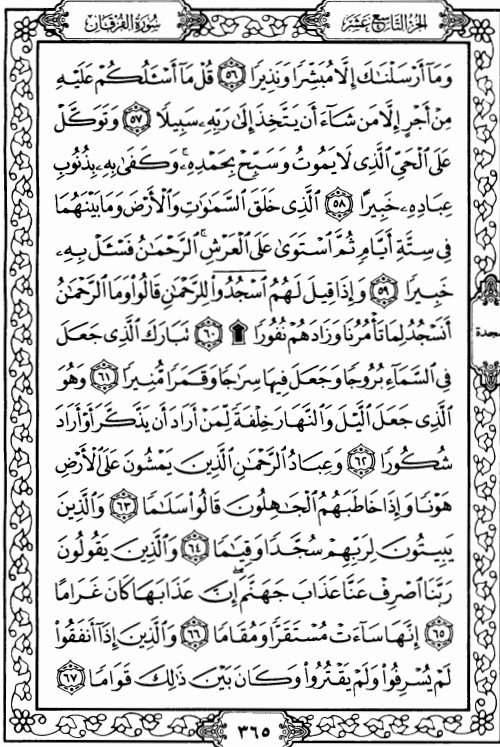 سُورَةُ الفُرقَان
الجُزءُ التَّاسِعَ عَشَر
وَمَآ أَرْسَلْنَٰكَ إِلَّا مُبَشِّرًا وَنَذِيرًا ٥٦ قُلْ مَآ أَسْـَٔلُكُمْ عَلَيْهِ
مِنْ أَجْرٍ إِلَّا مَن شَآءَ أَن يَتَّخِذَ إِلَىٰ رَبِّهِۦ سَبِيلًا ٥٧ وَتَوَكَّلْ
عَلَى ٱلْحَىِّ ٱلَّذِى لَا يَمُوتُ وَسَبِّحْ بِحَمْدِهِۦ ۚ وَكَفَىٰ بِهِۦ بِذُنُوبِ
عِبَادِهِۦ خَبِيرًا ٥٨ ٱلَّذِى خَلَقَ ٱلسَّمَٰوَٰتِ وَٱلْأَرْضَ وَمَا بَيْنَهُمَا
فِى سِتَّةِ أَيَّامٍ ثُمَّ ٱسْتَوَىٰ عَلَى ٱلْعَرْشِ ۚ ٱلرَّحْمَٰنُ فَسْـَٔلْ بِهِۦ
خَبِيرًا ٥٩ وَإِذَا قِيلَ لَهُمُ ٱسْجُدُوا۟ لِلرَّحْمَٰنِ قَالُوا۟ وَمَا ٱلرَّحْمَٰنُ
أَنَسْجُدُ لِمَا تَأْمُرُنَا وَزَادَهُمْ نُفُورًا ۩ ٦٠ تَبَارَكَ ٱلَّذِى جَعَلَ
سجدة
فِى ٱلسَّمَآءِ بُرُوجًا وَجَعَلَ فِيهَا سِرَٰجًا وَقَمَرًا مُّنِيرًا ٦١ وَهُوَ
ٱلَّذِى جَعَلَ ٱلَّيْلَ وَٱلنَّهَارَ خِلْفَةً لِّمَنْ أَرَادَ أَن يَذَّكَّرَ أَوْ أَرَادَ
شُكُورًا ٦٢ وَعِبَادُ ٱلرَّحْمَٰنِ ٱلَّذِينَ يَمْشُونَ عَلَى ٱلْأَرْضِ
هَوْنًا وَإِذَا خَاطَبَهُمُ ٱلْجَٰهِلُونَ قَالُوا۟ سَلَٰمًا ٦٣ وَٱلَّذِينَ
يَبِيتُونَ لِرَبِّهِمْ سُجَّدًا وَقِيَٰمًا ٦٤ وَٱلَّذِينَ يَقُولُونَ
رَبَّنَا ٱصْرِفْ عَنَّا عَذَابَ جَهَنَّمَ ۖ إِنَّ عَذَابَهَا كَانَ غَرَامًا
٦٥ إِنَّهَا سَآءَتْ مُسْتَقَرًّا وَمُقَامًا ٦٦ وَٱلَّذِينَ إِذَآ أَنفَقُوا۟
لَمْ يُسْرِفُوا۟ وَلَمْ يَقْتُرُوا۟ وَكَانَ بَيْنَ ذَٰلِكَ قَوَامًا ٦٧
٣٦٥